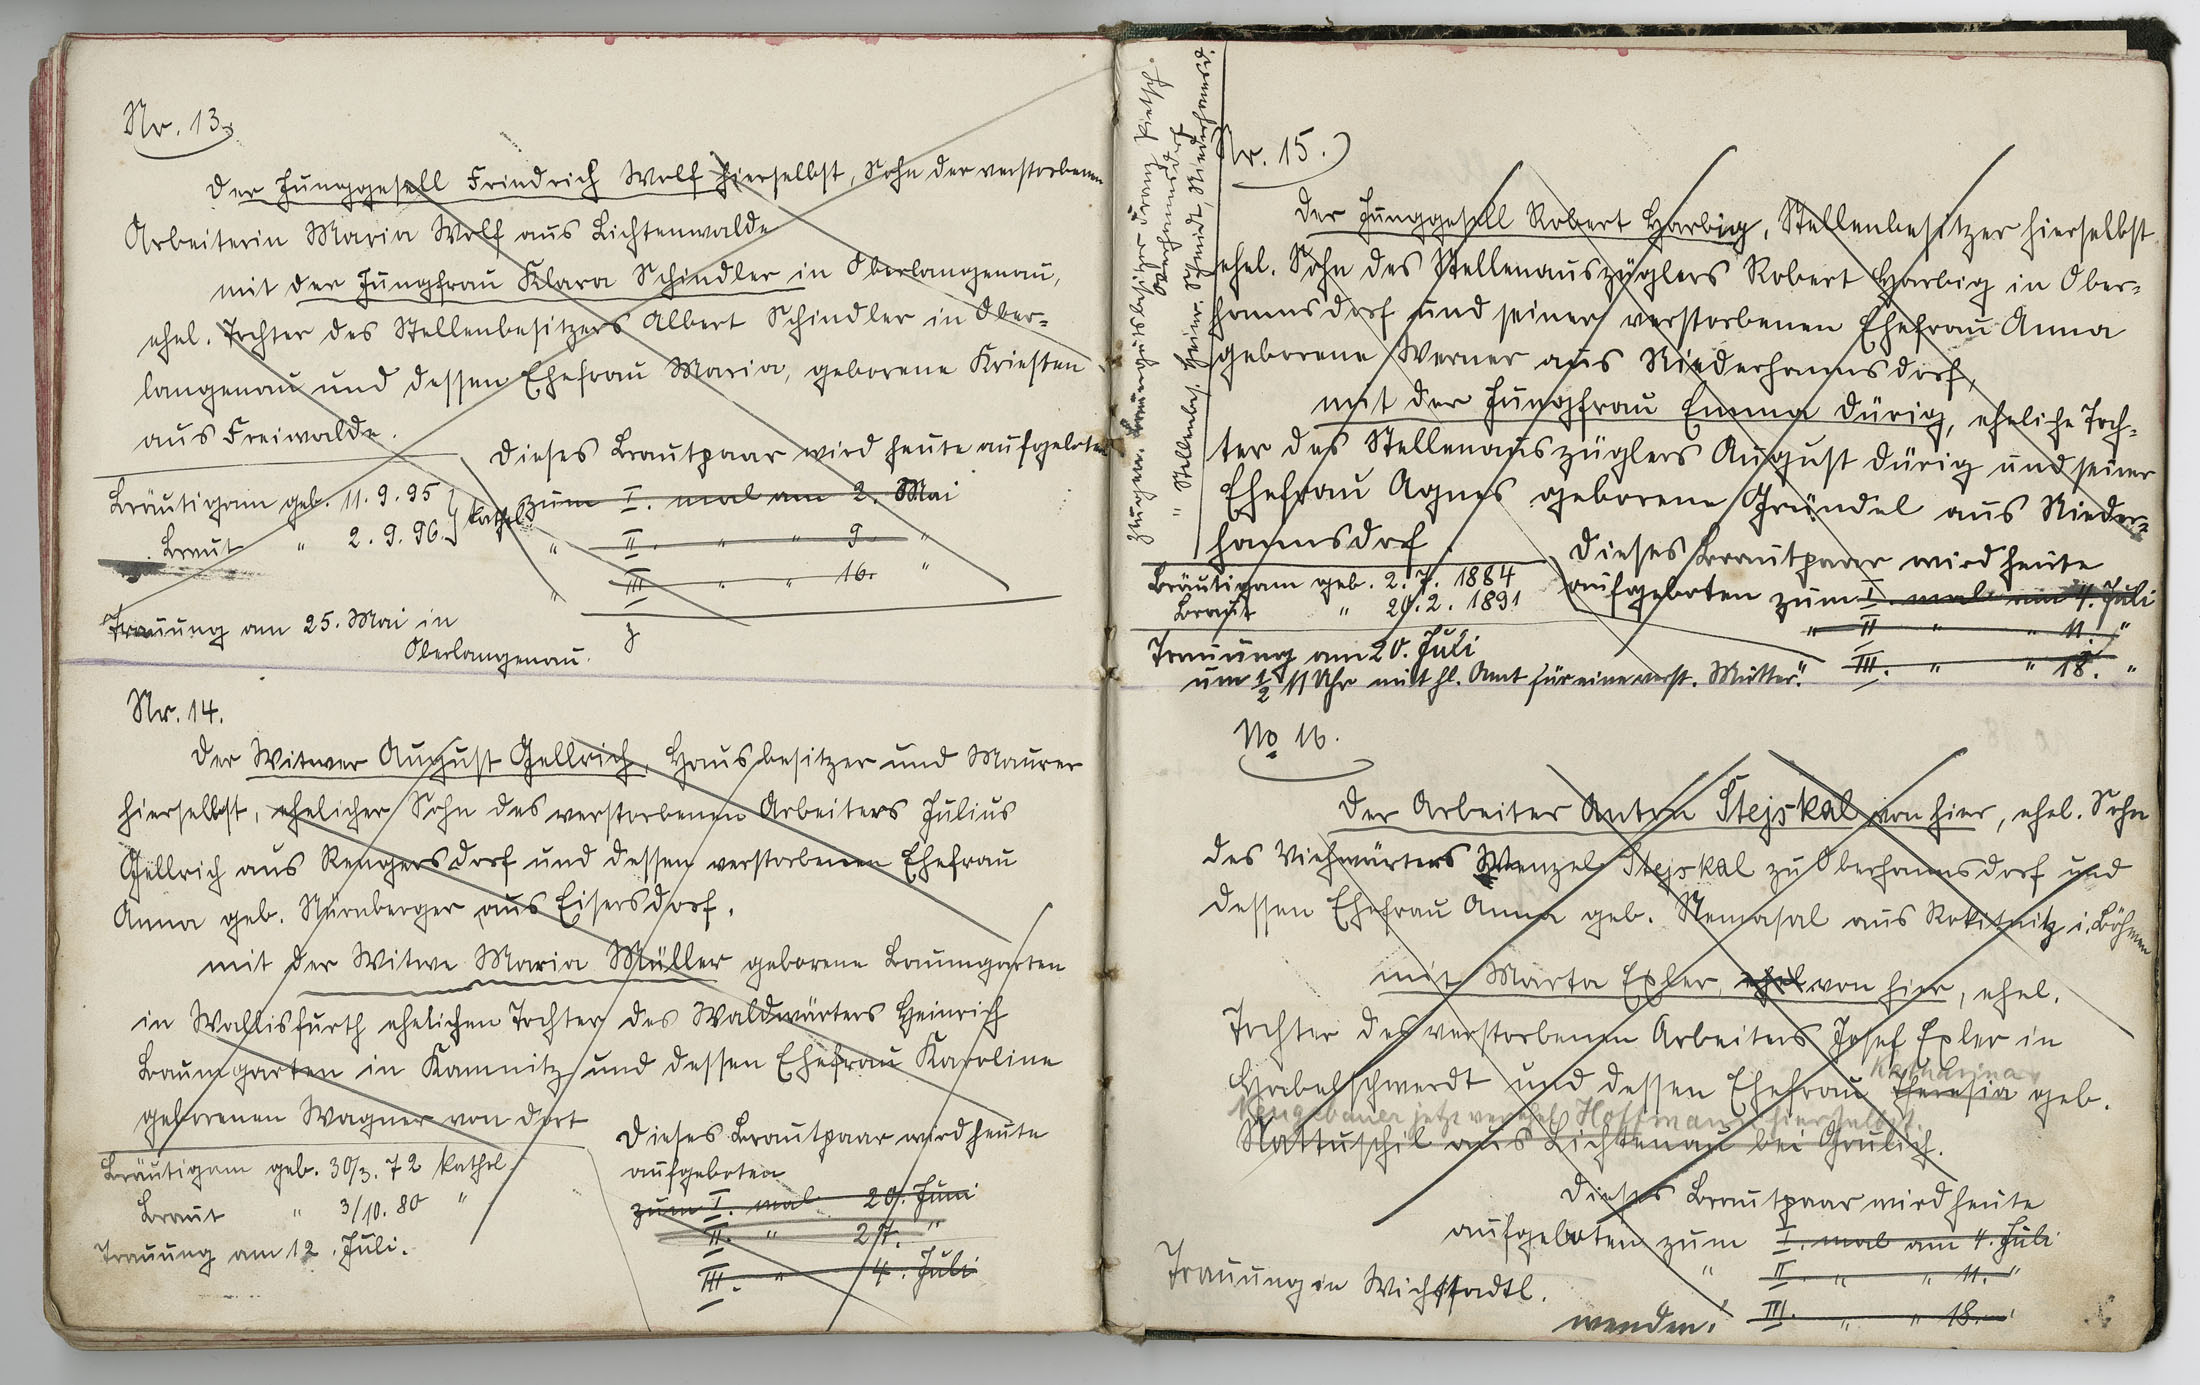 Nr. 13.
Der Junggesell Friedrich Wolf hierselbst, Sohn der verstorbenen
Arbeiterin Maria Wolf aus Lichtenwalde
mit der Jungfrau Klara Schindler in Oberlangenau,
ehel. Tochter des Stellenbesitzers Albert Schindler in Ober=
langenau und dessen Ehefrau Maria, geborene Kriesten
aus Freiwalde.
Dieses Brautpaar wird heute aufgeboten
Bräutigam geb. 11. 9. 95 } kathol.
Braut " 2. 9. 96.
zum I. mal am 2. Mai
" II. " " 9. "
" III " " 16. "
Trauung am 25. Mai in
Oberlangenau.
Nr. 14.
Der Witwer August Gellrich, Hausbesitzer und Maurer
hierselbst, ehelicher Sohn des verstorbenen Arbeiters Julius
Gellrich aus Rengersdorf und dessen verstorbenen Ehefrau
Anna geb. Nürnberger aus Eisersdorf.
mit der Witwe Maria Müller geborene Baumgarten
in Wallisfurth ehelichen Tochter des Waldwärters Heinrich
Baumgarten in Kamnitz und dessen Ehefrau Karoline
geborenen Wagner von dort
Dieses Brautpaar wird heute
aufgeboten
zum I. mal 20. Juni
II. " 27. "
III. " 4. Juli
Bräutigam geb. 30/3. 72 kathol.
Braut " 3/10. 80 "
Trauung am 12. Juli.
Zeugen: Bauergutsbesitzer Franz Pietsch.
Oberhannsdorf
" Stellenbes. Heinr. Schmidt, Niederhannsd.
Nr. 15.
Der Junggesell Robert Harbig, Stellenbesitzer hierselbst
ehel. Sohn des Stellenauszüglers Robert Harbig in Ober=
hannsdorf und seiner verstorbenen Ehefrau Anna
geborene Werner aus Niederhannsdorf,
mit der Jungfrau Emma Dürig, eheliche Toch=
ter des Stellenauszüglers August Dürig und seiner
Ehefrau Agnes geborene Gründel aus Nieder=
hannsdorf.
Dieses Brautpaar wird heute
aufgeboten zum I. mal am 4. Juli
" II " " 11. "
III. " " 18. "
Bräutigam geb. 2. 7. 1884
Braut " 20. 2. 1891
Trauung am 20. Juli
um 1/2 11 Uhr mit hl. Amt für eine verst. Mutter."
No 16.
Der Arbeiter Anton Stejskal von hier, ehel. Sohn
des Viehwärters Wenzel Stejskal zu Oberhannsdorf und
dessen Ehefrau Anna geb. aus Rokitnitz i. Böhmen
mit Marta Exler, ehel von hier, ehel.
Tochter des verstorbenen Arbeiters Josef Exler in
Katharina
Habelschwerdt und dessen Ehefrau Theresia geb.
Neugebauer jetzt verehel. Hoffmann hierselbst.
Nattuschil aus Lichtenau bei Grulich.
Dieses Brautpaar wird heute
aufgeboten zum I. mal am 4. Juli
" II. " " 11. "
III. " " 18. "
Trauung in Wichstadtl.
wenden!